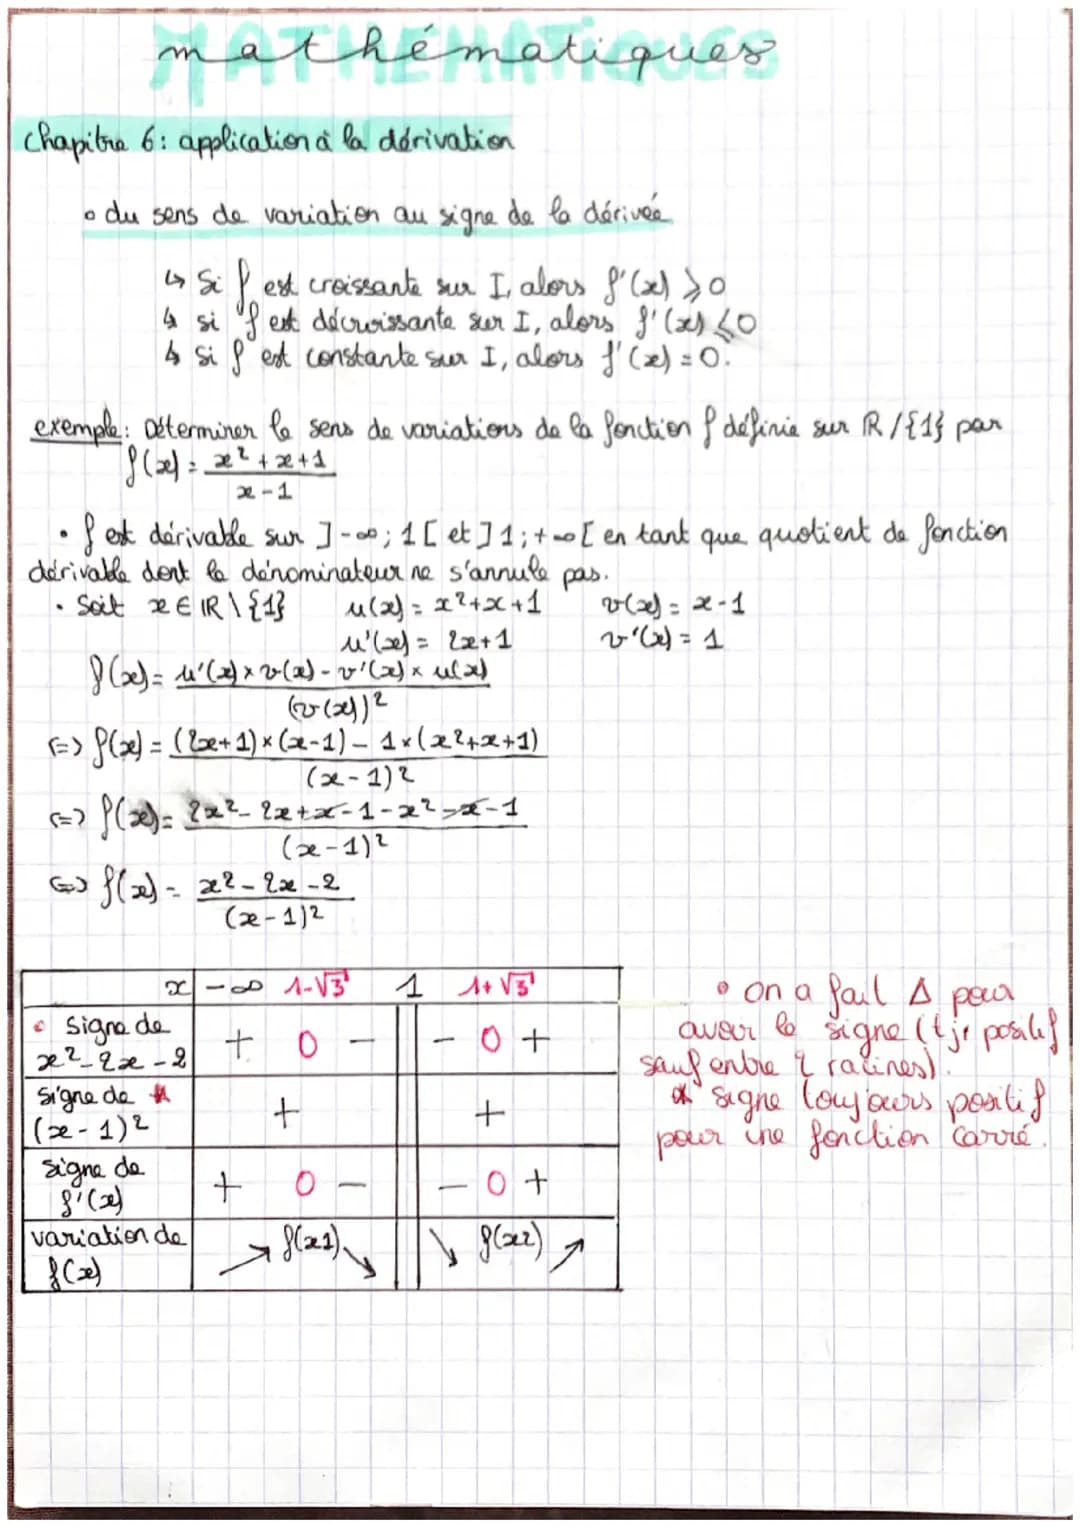 MATHÉMATIQUES
mathématiques
Chapitre 6 : application à la dérivation
• du sens de variation au signe de la dérivée
↳ Si f est croissante sur I, alors f'(x) ⩾ 0
↳ si f est décroissante sur I, alors f'(x) ⩽ 0
↳ Si f est constante sur I, alors f'(x) = 0.
exemple : Déterminer le sens de variations de la fonction f définie sur ℝ/{1} par
f(x) = (x² + x + 1)/(x - 1)
• f est dérivable sur ]-∞; 1[ et ]1; +∞[ en tant que quotient de fonction
dérivable dont le dénominateur ne s'annule pas.
• Soit x ∈ ℝ\{1} u(x) = x² + x + 1 v(x) = x - 1
u'(x) = 2x + 1 v'(x) = 1
f(x) = (u'(x) × v(x) - v'(x) × u(x))/(v(x))²
(=) f(x) = ((2x + 1) × (x - 1) - 1 × (x² + x + 1))/(x - 1)²
(=) f(x) = (2x² - 2x + x - 1 - x² - x - 1)/(x - 1)²
(=) f(x) = (x² - 2x - 2)/(x - 1)²
x -∞ 1-√3 1 1+√3
• Signe de x² - 2x - 2 + 0 - || - 0 +
Signe de * (x - 1)² + || +
Signe de f'(x) + 0 - || - 0 +
variation de f(x) ↗ f(x1) ↘ || ↘ f(x2) ↗
• on a fait Δ pour
avoir le signe (tjr positif
sauf entre 2 racines).
* signe toujours positif
pour une fonction carré.